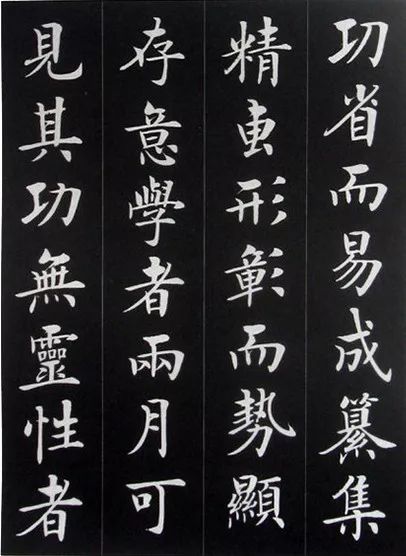 功省而易成纂集
精專形彰而勢顯
存意學者兩月可
見其功無靈性者